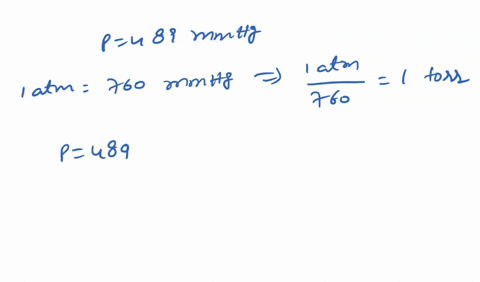 P=489 mmHg
1 atm = 760 mmHg ⇒ 1 atm/760 = 1 torr
P=489